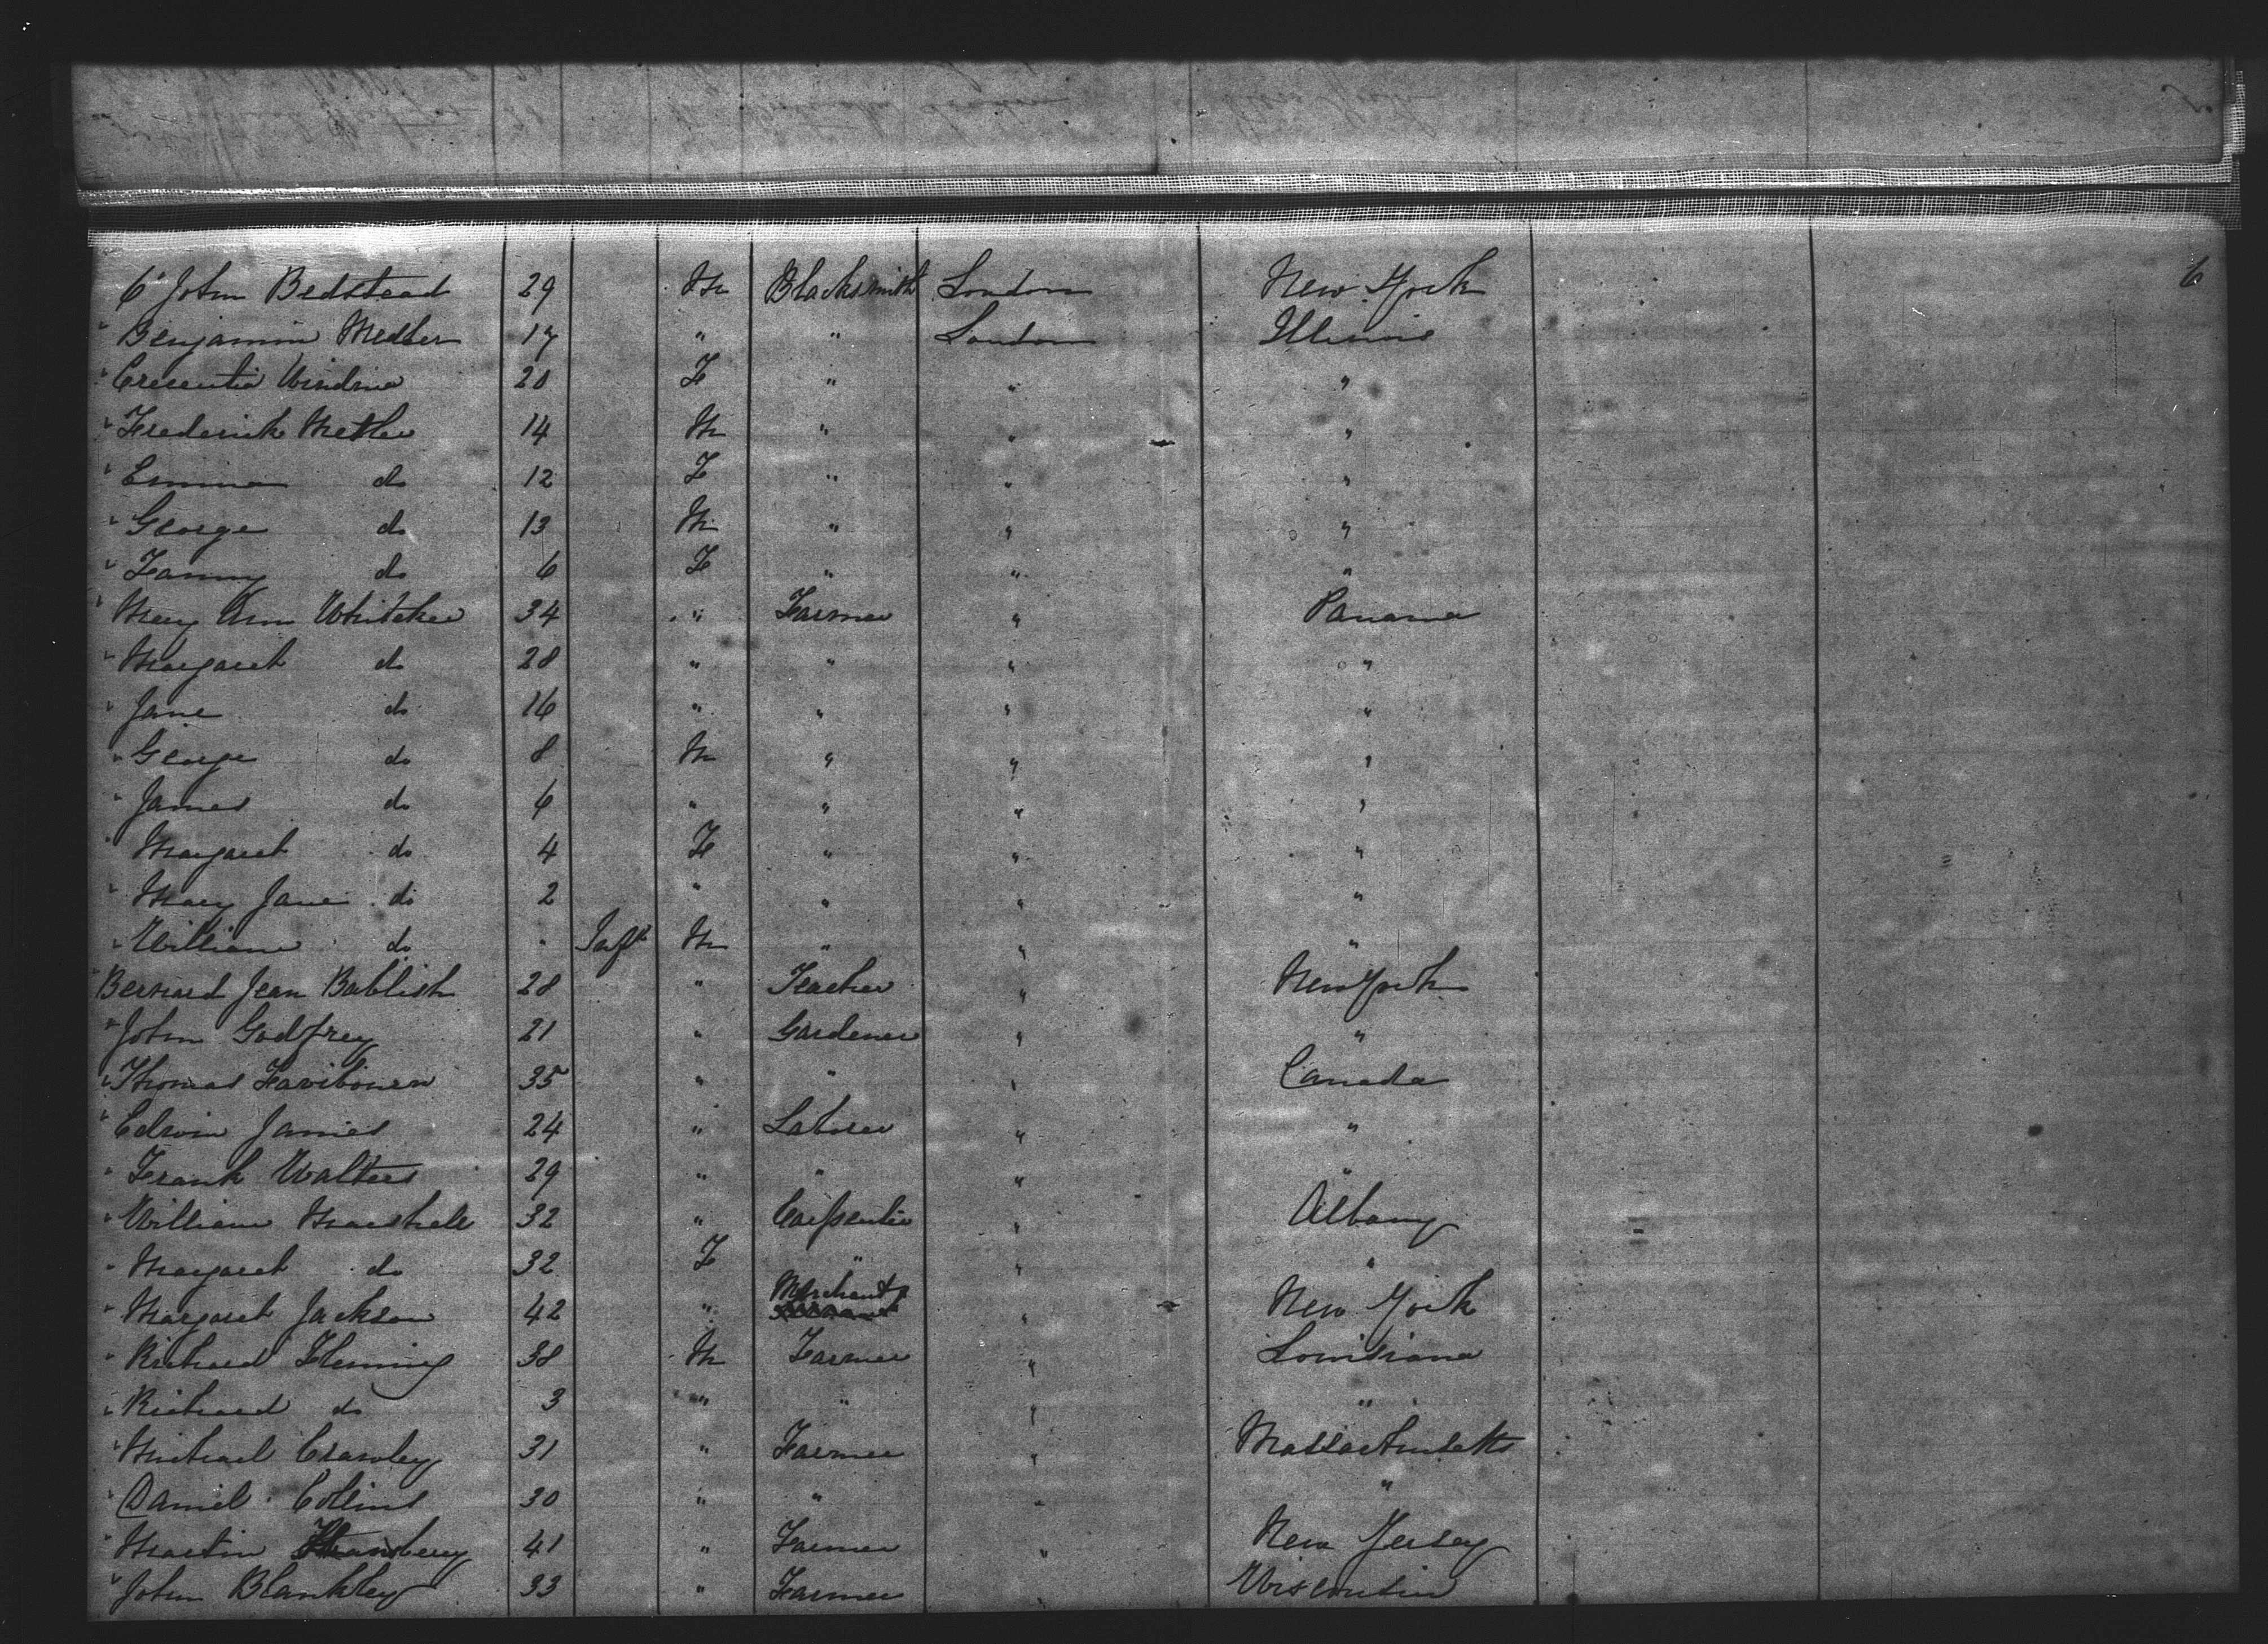 6 John Bedstead 29 M Blacksmith London New York 6
" Benjamin Medler 17 " " London Illinois
" Cresentia 20 F " " "
" Frederick Metler 14 M " " "
" Emma do 12 F " " "
" George do 13 M " " "
" Fanny do 6 F " " "
" Mary Ann Whiteker 34 " Farmer " Panama
" Margaret do 28 " " " "
" Jane do 16 " " " "
" George do 8 M " " "
" James do 6 " " " "
" Margaret do 4 F " " "
" Mary Jane do 2 " " " "
" William do " Inft M " " "
" Bernard Jean Bablish 28 " Teacher " New York
" John Godfrey 21 " Gardener " "
" Thomas 35 " " " Canada
" Edwin James 24 " Laborer " "
" Frank Walters 29 " " " "
" William Marshall 32 " Carpenter " Albany
" Margaret do 32 F " " "
" Margaret Jackson 42 " Merchant " New York
" Richard Fleming 38 M Farmer " Louisiana
" Richard do 3 " " " "
" Michael Crawley 31 " Farmer " Massachusetts
" Daniel Collins 30 " " " "
" Martin 41 " Farmer " New Jersey
" John Blankley 33 " Farmer Wisconsin